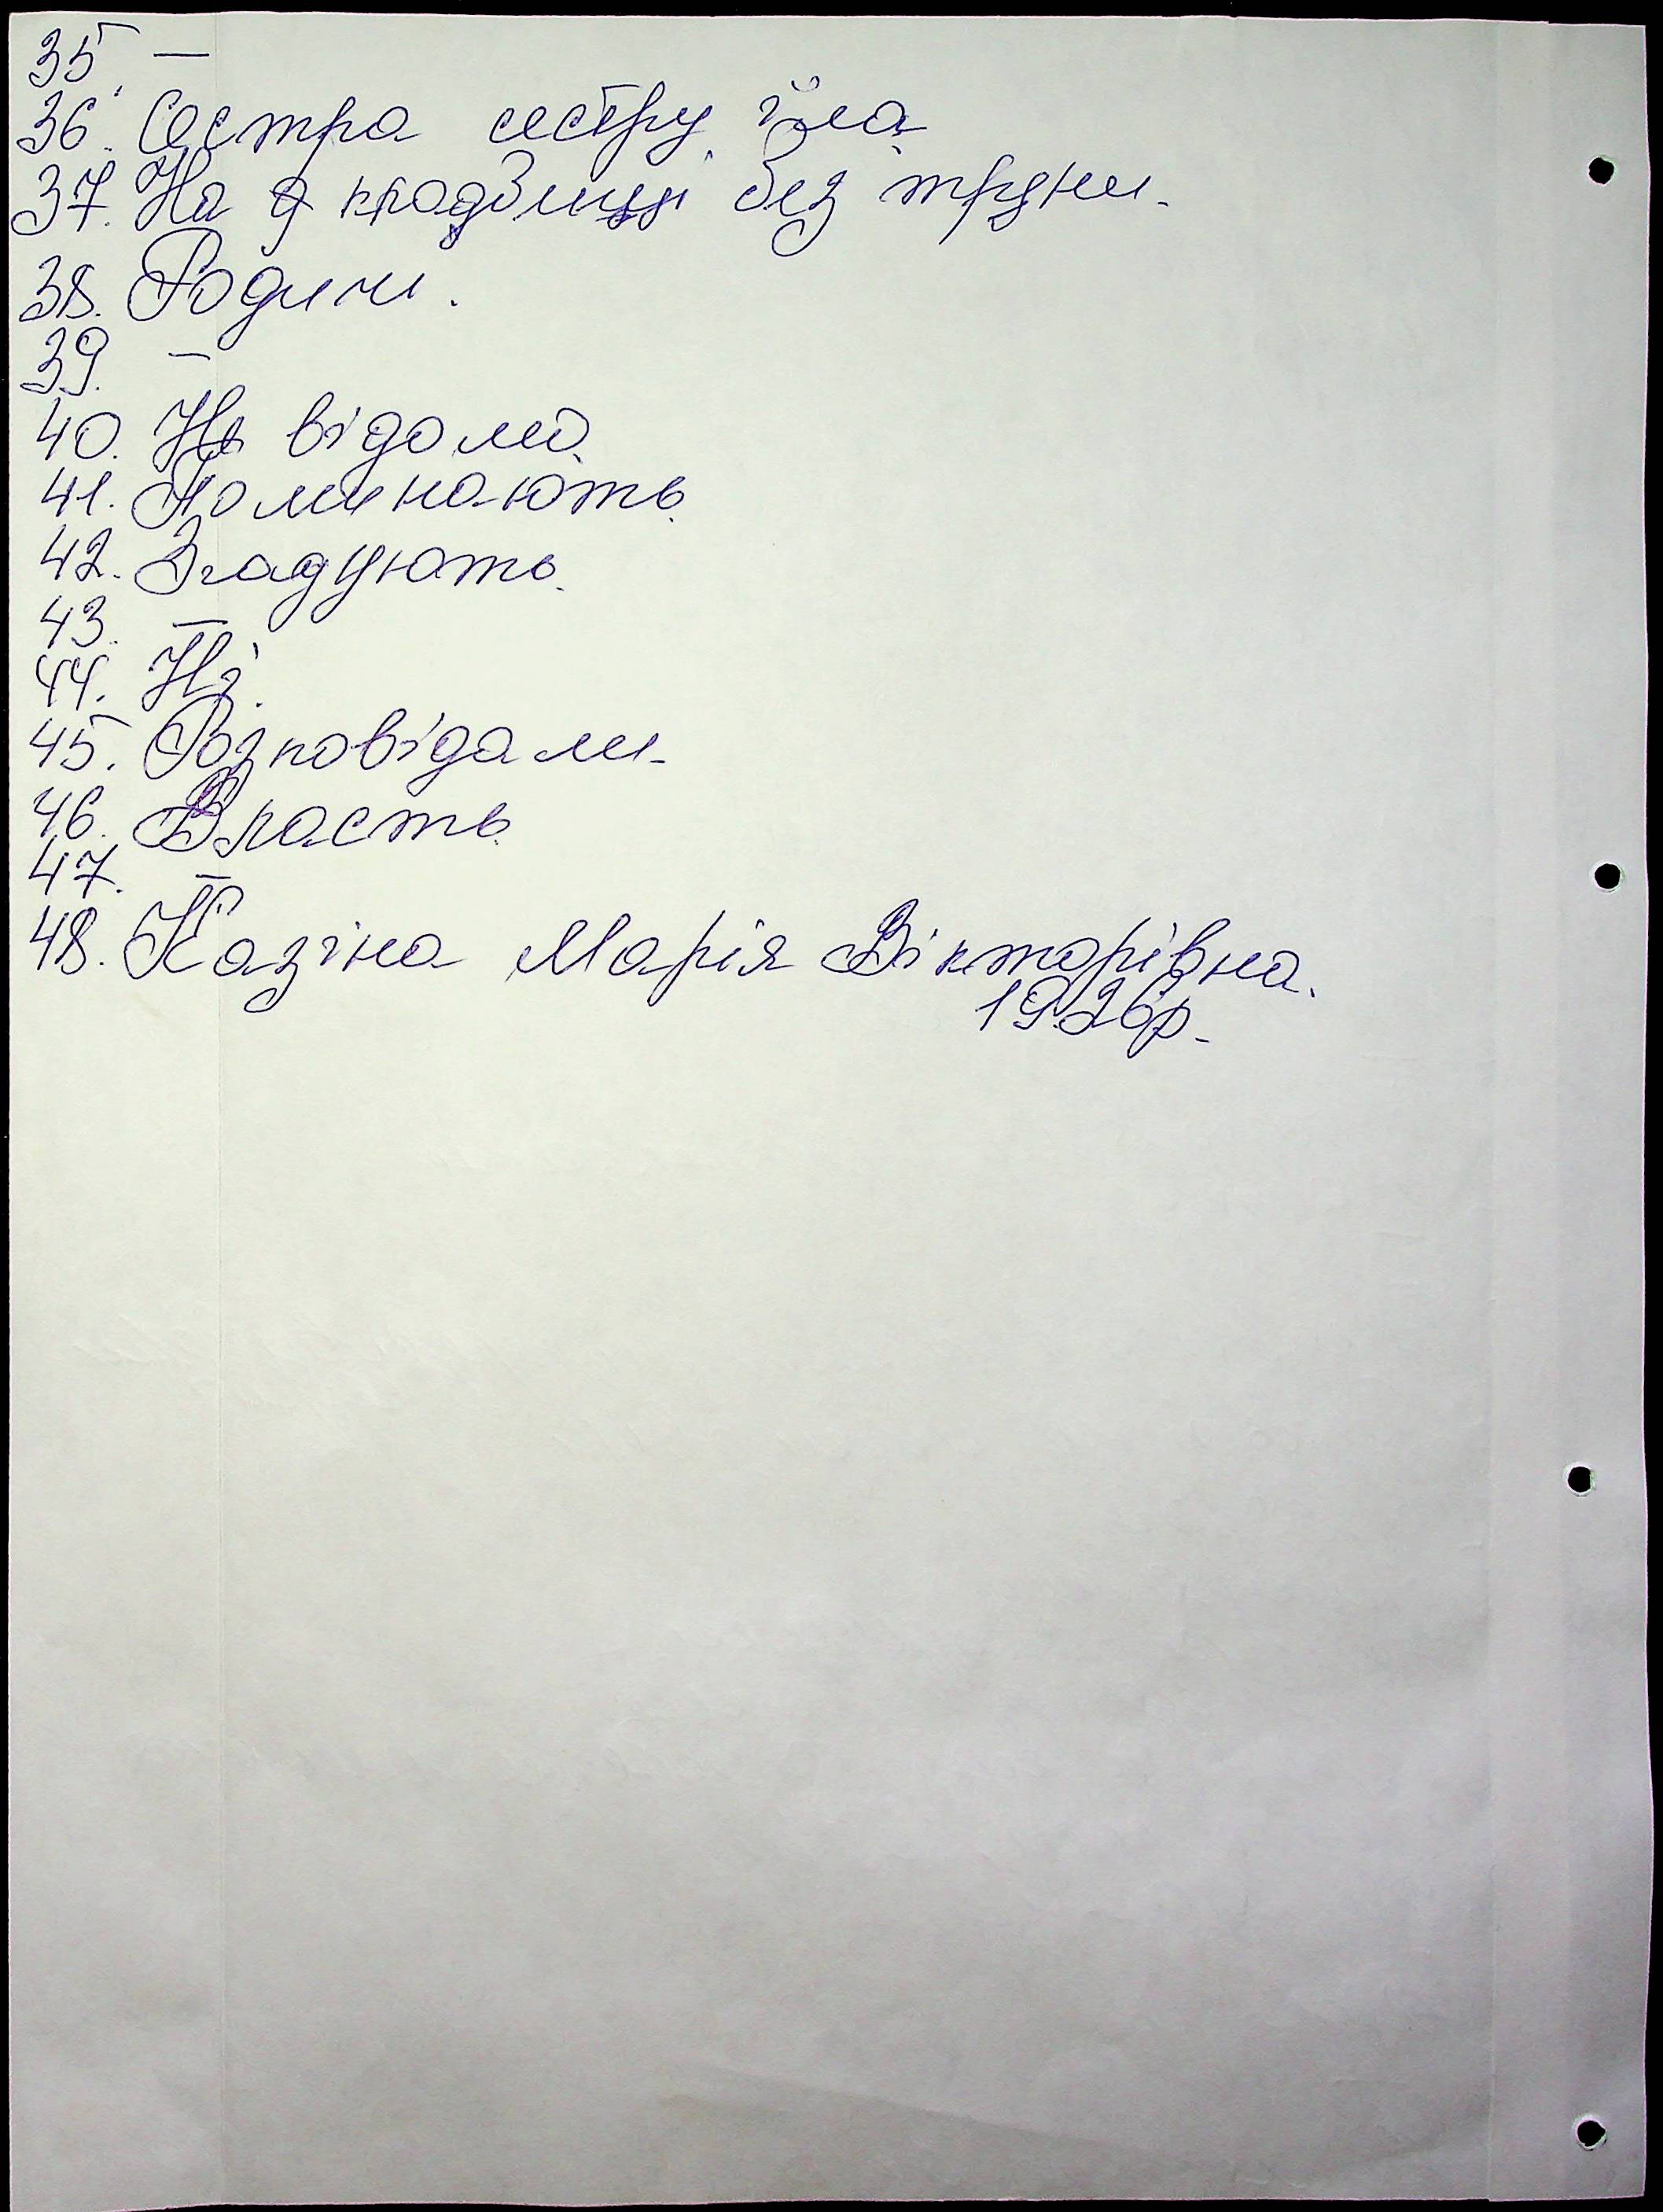 35. —
36. Сестра сестру їла.
37. На кладбищі без труни.
38. Родичі.
39. —
40. Не відомо.
41. Поминають.
42. Згадують.
43. —
44. Ні.
45. Розповідали.
46. Власть.
47. —
48. Казіна Марія Вікторівна.
1926р.